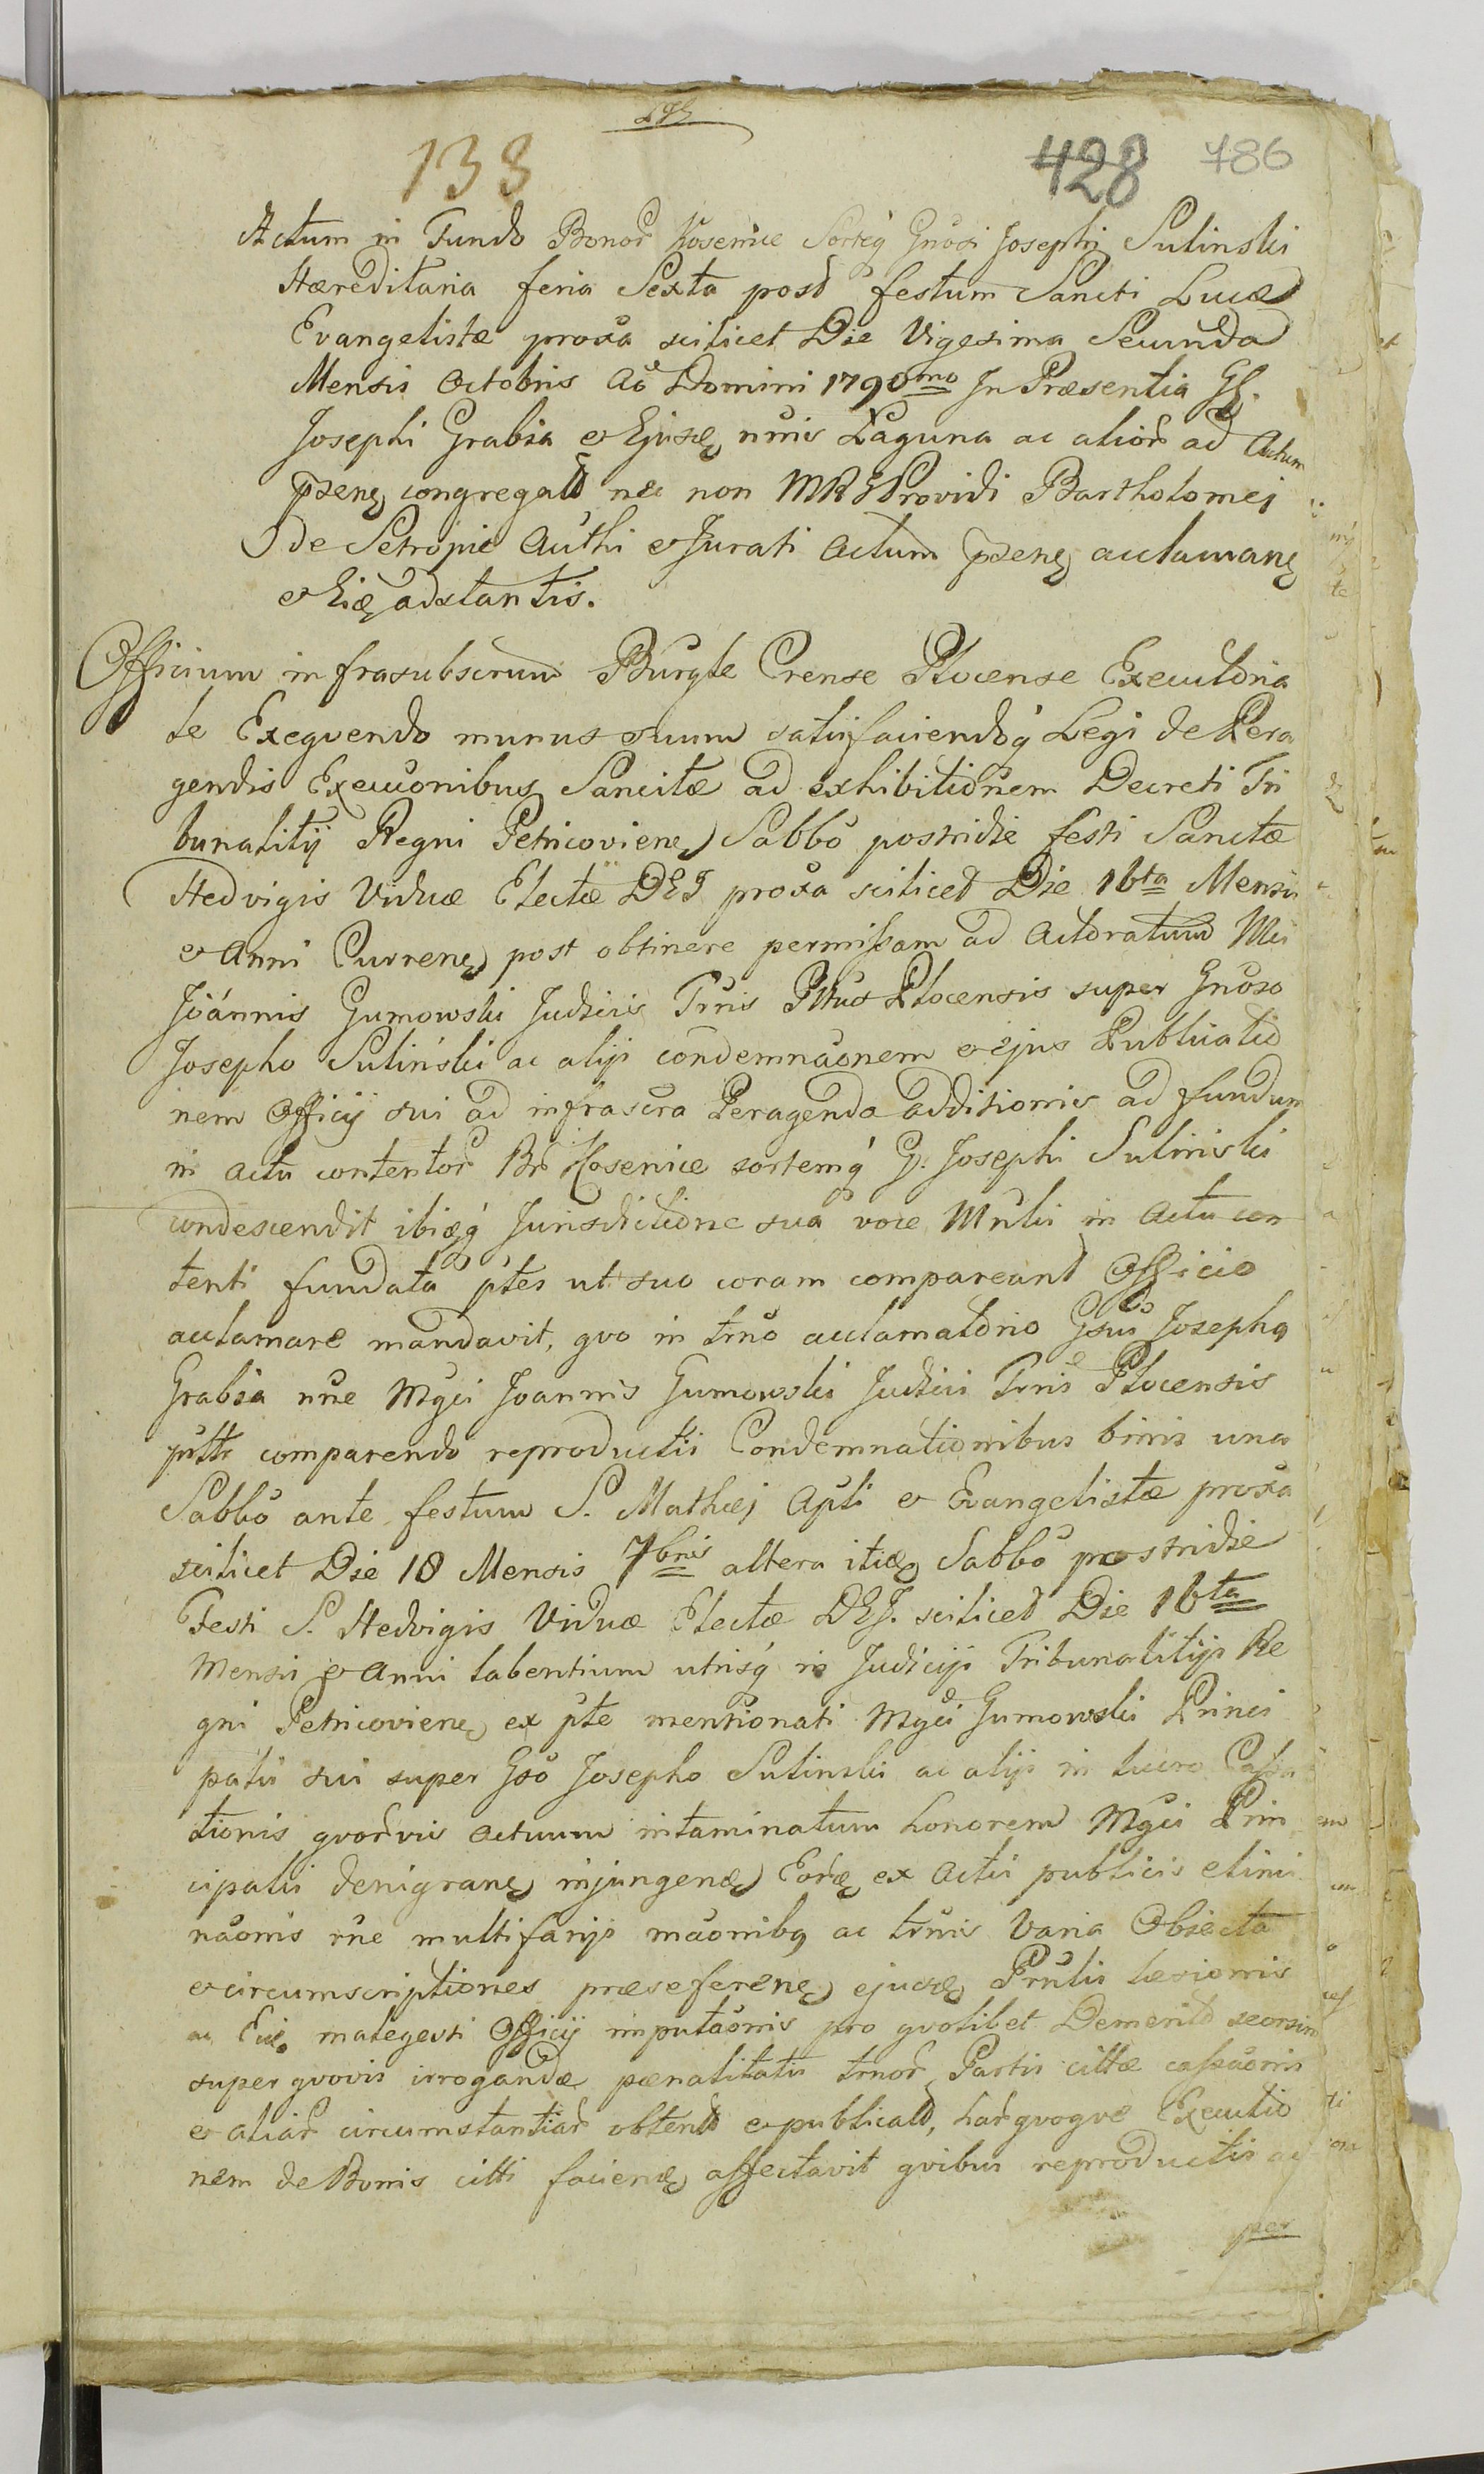 138
428 786
Actum in Fundo Bonor Kosemice Sorteq Gnosi Josephi Sulinski
Hæreditaria feria Sexta post festum Sancti Lucæ
Evangelistæ proxa scilicet Die Vigesima Secunda
Mensis Octobris Ao Domini 1790mo In Præsentia GG.
Josephi Grabia et Ejusd nnis Łaguna ac alior ad Actum
psens congregatt nec non MREProvidi Bartholomei
de Setropie Authi et Jurati Actum psens acclamans
et Eid adstantis.
Officium infrasubscrum Burgle Crense Plocense Executoria
le Exequendo munus suum satisfaciendoq Legi de Pera
gendis Execuonibus Sancitæ ad exhibitionem Decreti Tri
bunalitij Regni Petricoviens Sabbo postridie festi Sanctæ
Hedvigis Viduæ Electæ DEI proxa scilicet Die 16ta Mensis
et Anni Currens post obtinere permissam ad Actoratum Mci
Joannis Gumowski Judicis Trris Pttus Plocensis super Gnoso
Josepho Sulinski ac alijs condemnaonem et ejus Publicatio
nem Officij sui ad infrascra Peragenda additionis ad fundum
in actu contentor Br Kosemice sortemq G. Josephi Sulinski
condescendit ibidq Jurisdictione sua voce Mnlis in Actu con
tenti fundata ptes ut suo coram compareant Officio
acclamare mandavit, qvo in trno acclamatorio Gsus Josephq
Grabia nne Mgci Joannis Gumowski Judicis Trris Plocensis
pntte comparendo reproductis Condemnationibus binis una
Sabbo ante festum S. Mathæi Apli et Evangelistæ proxa
scilicet Die 18 Mensis 7bris altera itid Sabbo postridie
Festi S. Hedvigis Viduæ Electæ DEI. scilicet Die 16ta
Mensis et Anni labentium utrisq in Judicijs Tribunalitijs Re
gni Petricoviens ex pte mentionati Mgci Gumowski Princi
palis sui super Gso Josepho Sulinski ac alijs in lucro Cassa
tionis qvorvis Actuum intaminatum honorem Mgci Prin
cipalis denigrans injungend Eord ex Actis publicis elimi
naonis rne multifarijs maonibq ac trnis Varia Obiecta
et circumscriptiones præseferens ejusd Prnlis læsionis
ac Eid malegesti Officij imputaonis pro qvolibet Demerito seorsim
super qvovis irrogandæ pænalitatis trnor Partis cittæ cassaonis
et aliar circumstantiar obtentt et publicatt, har qvoqve Executio
nem de Bonis citti faciend affectavit qvibus reproductis ac
per